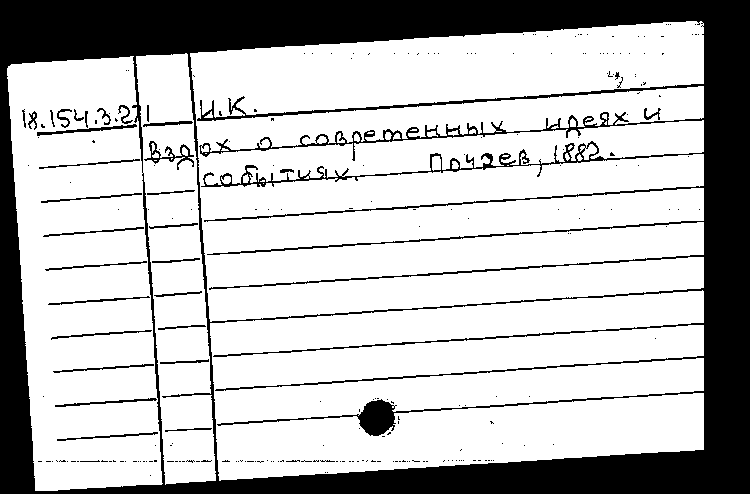 18.154.3.271 И.К.
Вздох о современных идеях и
событиях. Почаев, 1882.